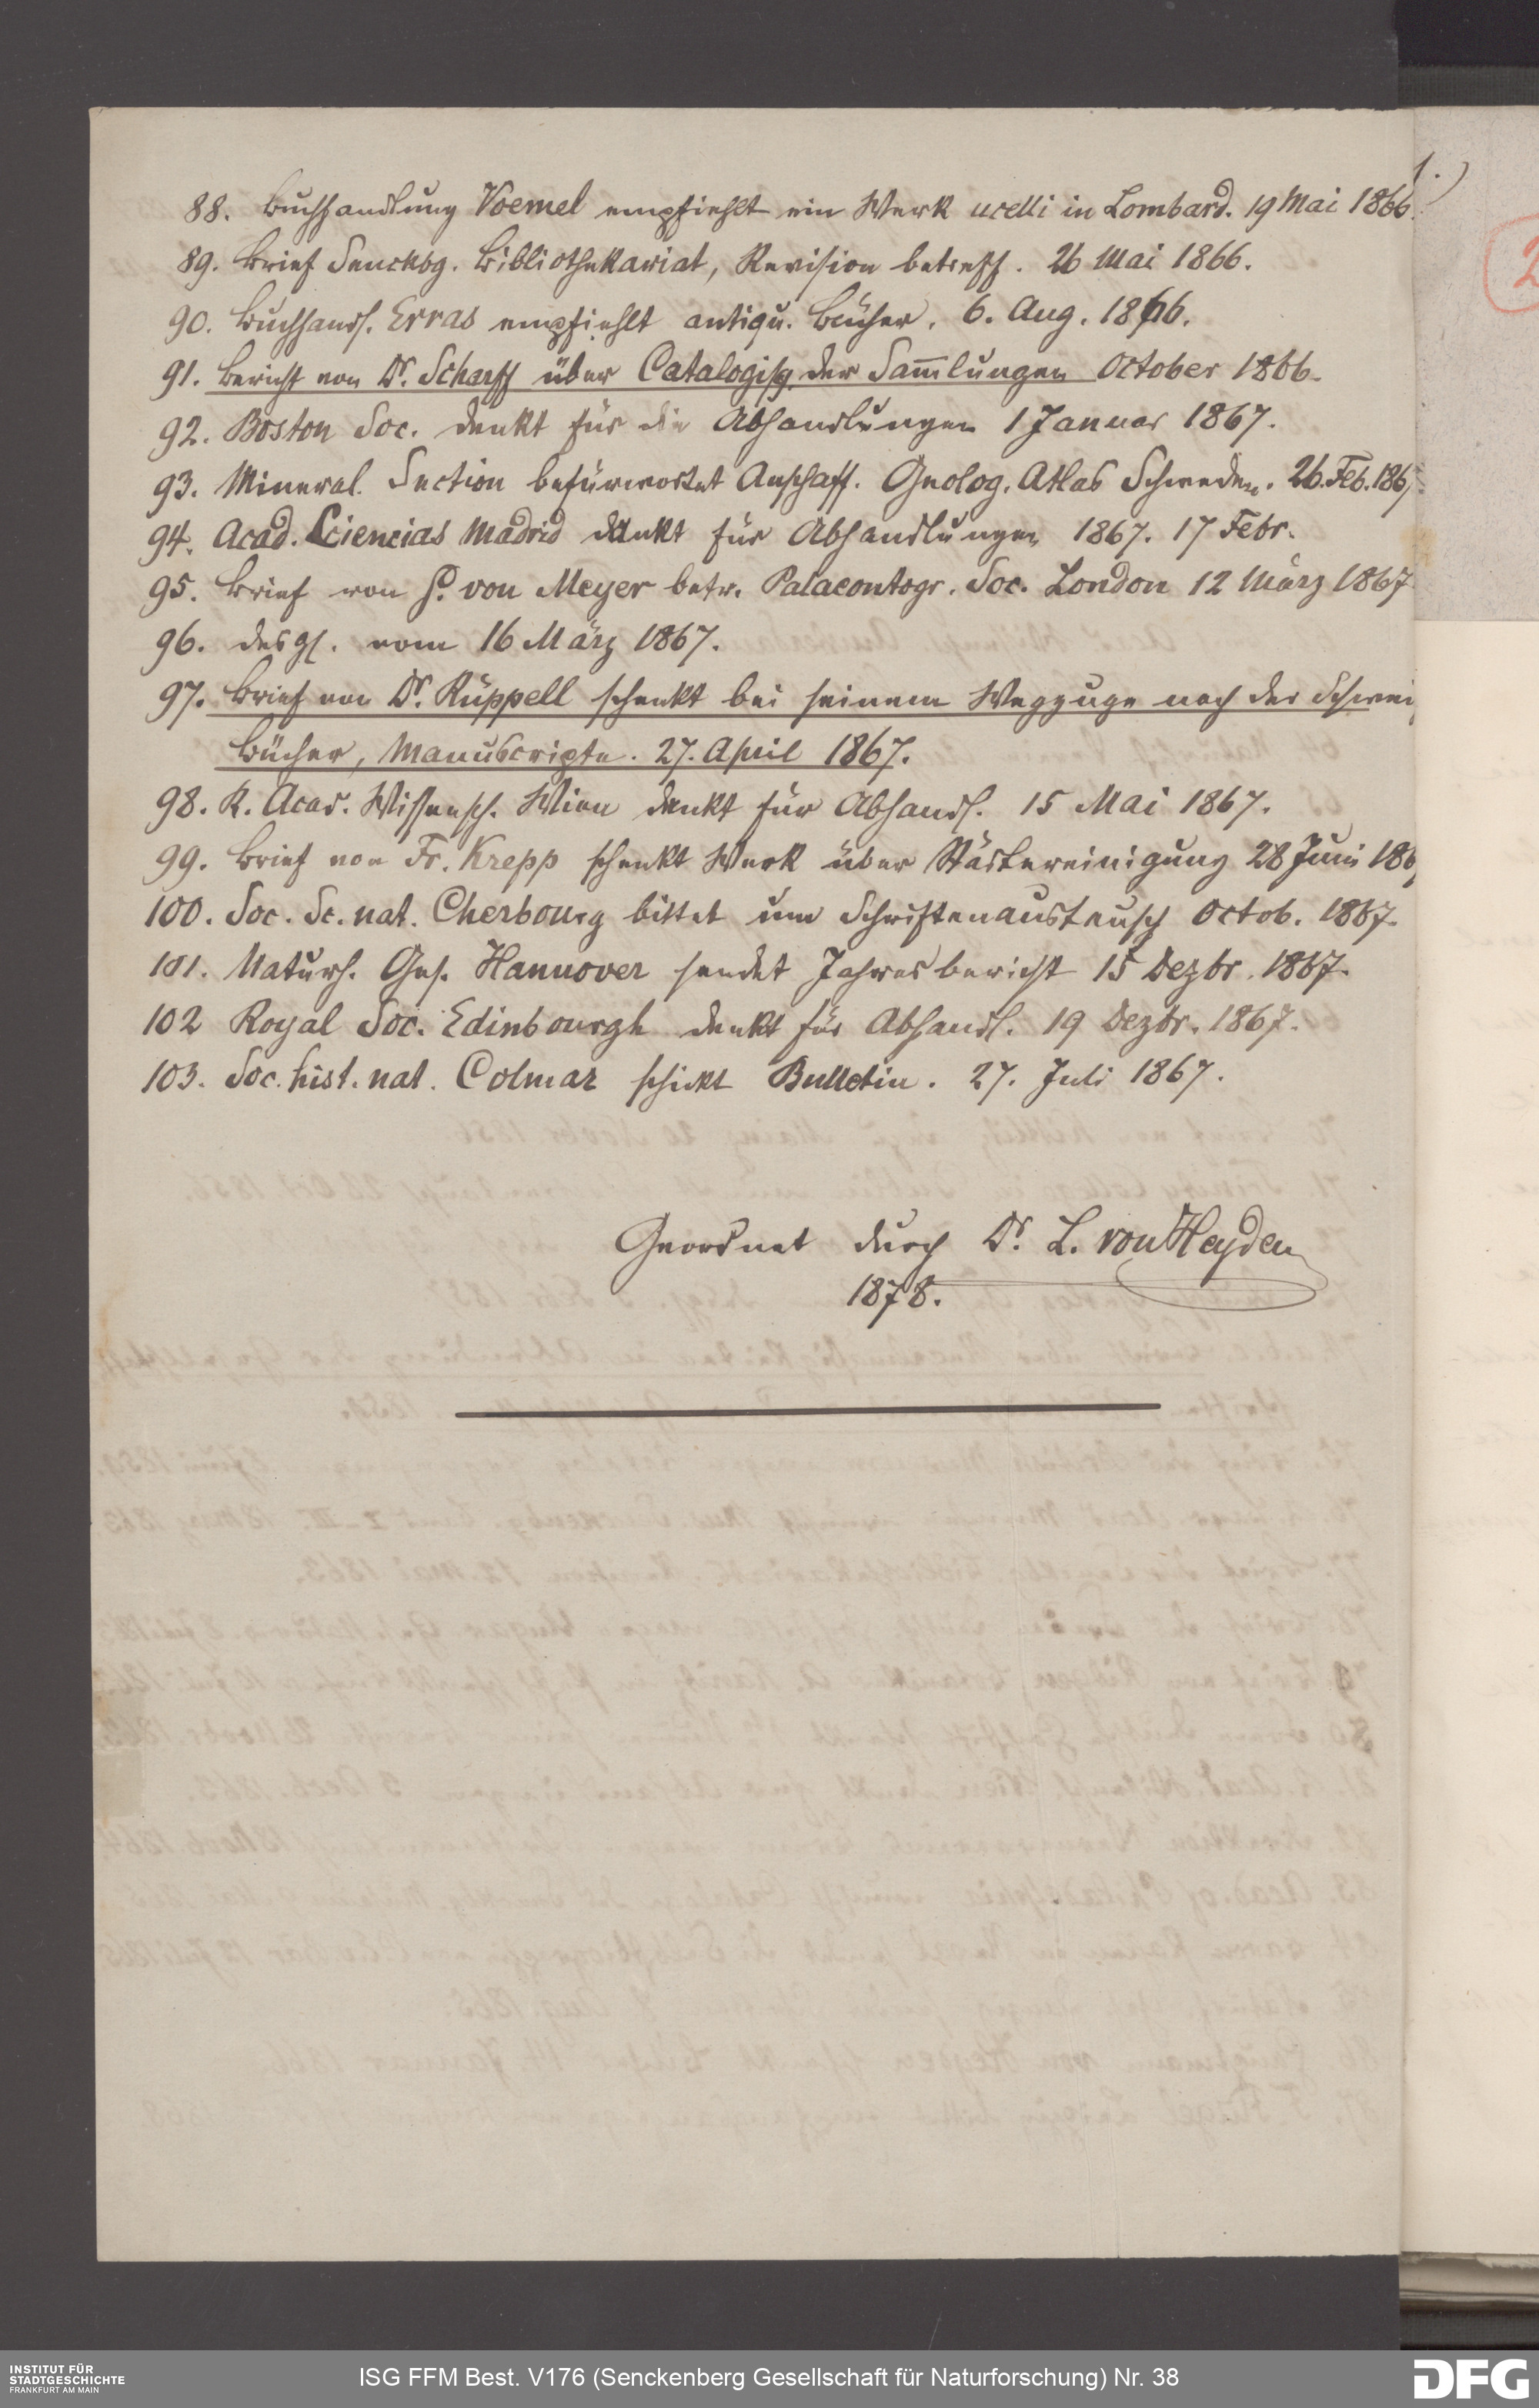 88. Buchhandlung Voemel empfiehlt ein Werk ucelli in Lombard. 19 Mai 1866.
89. Brief Senckbg. Bibliothekariat, Revision betreff. 26 Mai 1866.
90. Buchhandl. Erras empfiehlt antiqu. Bücher. 6. Aug. 1866.
91. Bericht von Dr. Scharff über Catalogisg. der Sam̅lungen October 1866.
92. Boston Soc. dankt für die Abhandlungen 1 Januar 1867.
93. Mineral. Section befürwortet Anschaff. Geolog. Atlas Schweden. 26. Feb. 1867
94. Acad. Sciencias Madrid dankt für Abhandlungen 1867. 17 Febr.
95. Brief von H. von Meyer betr. Palaeontogr. Soc. London 12 März 1867
96. desgl. vom 16 März 1867.
97. Brief von Dr. Rüppell schenkt bei seinem Wegzuge nach der Schweiz
Bücher, Manuscripte. 27. April 1867.
98. K. Acad. Wissensch. Wien dankt für Abhandl. 15 Mai 1867.
99. Brief von Fr. Krepp schenkt Werk über Städtereinigung 28 Juni 1867
100. Soc. Sc. nat. Cherbourg bittet um Schriftenaustausch Octob. 1867.
101. Naturh. Ges. Hannover sendet Jahresbericht 15 Dezbr. 1867.
102 Royal Soc. Edinbourgh dankt für Abhandl. 19 Dezbr. 1867.
103. Soc. hist. nat. Colmar schickt Bulletin. 27. Juli 1867.
Geordnet durch Dr. L. von Heyden
1878.
INSTITUT FÜR
STADTGESCHICHTE
FRANKFURT AM MAIN
ISG FFM Best. V176 (Senckenberg Gesellschaft für Naturforschung) Nr. 38
DFG